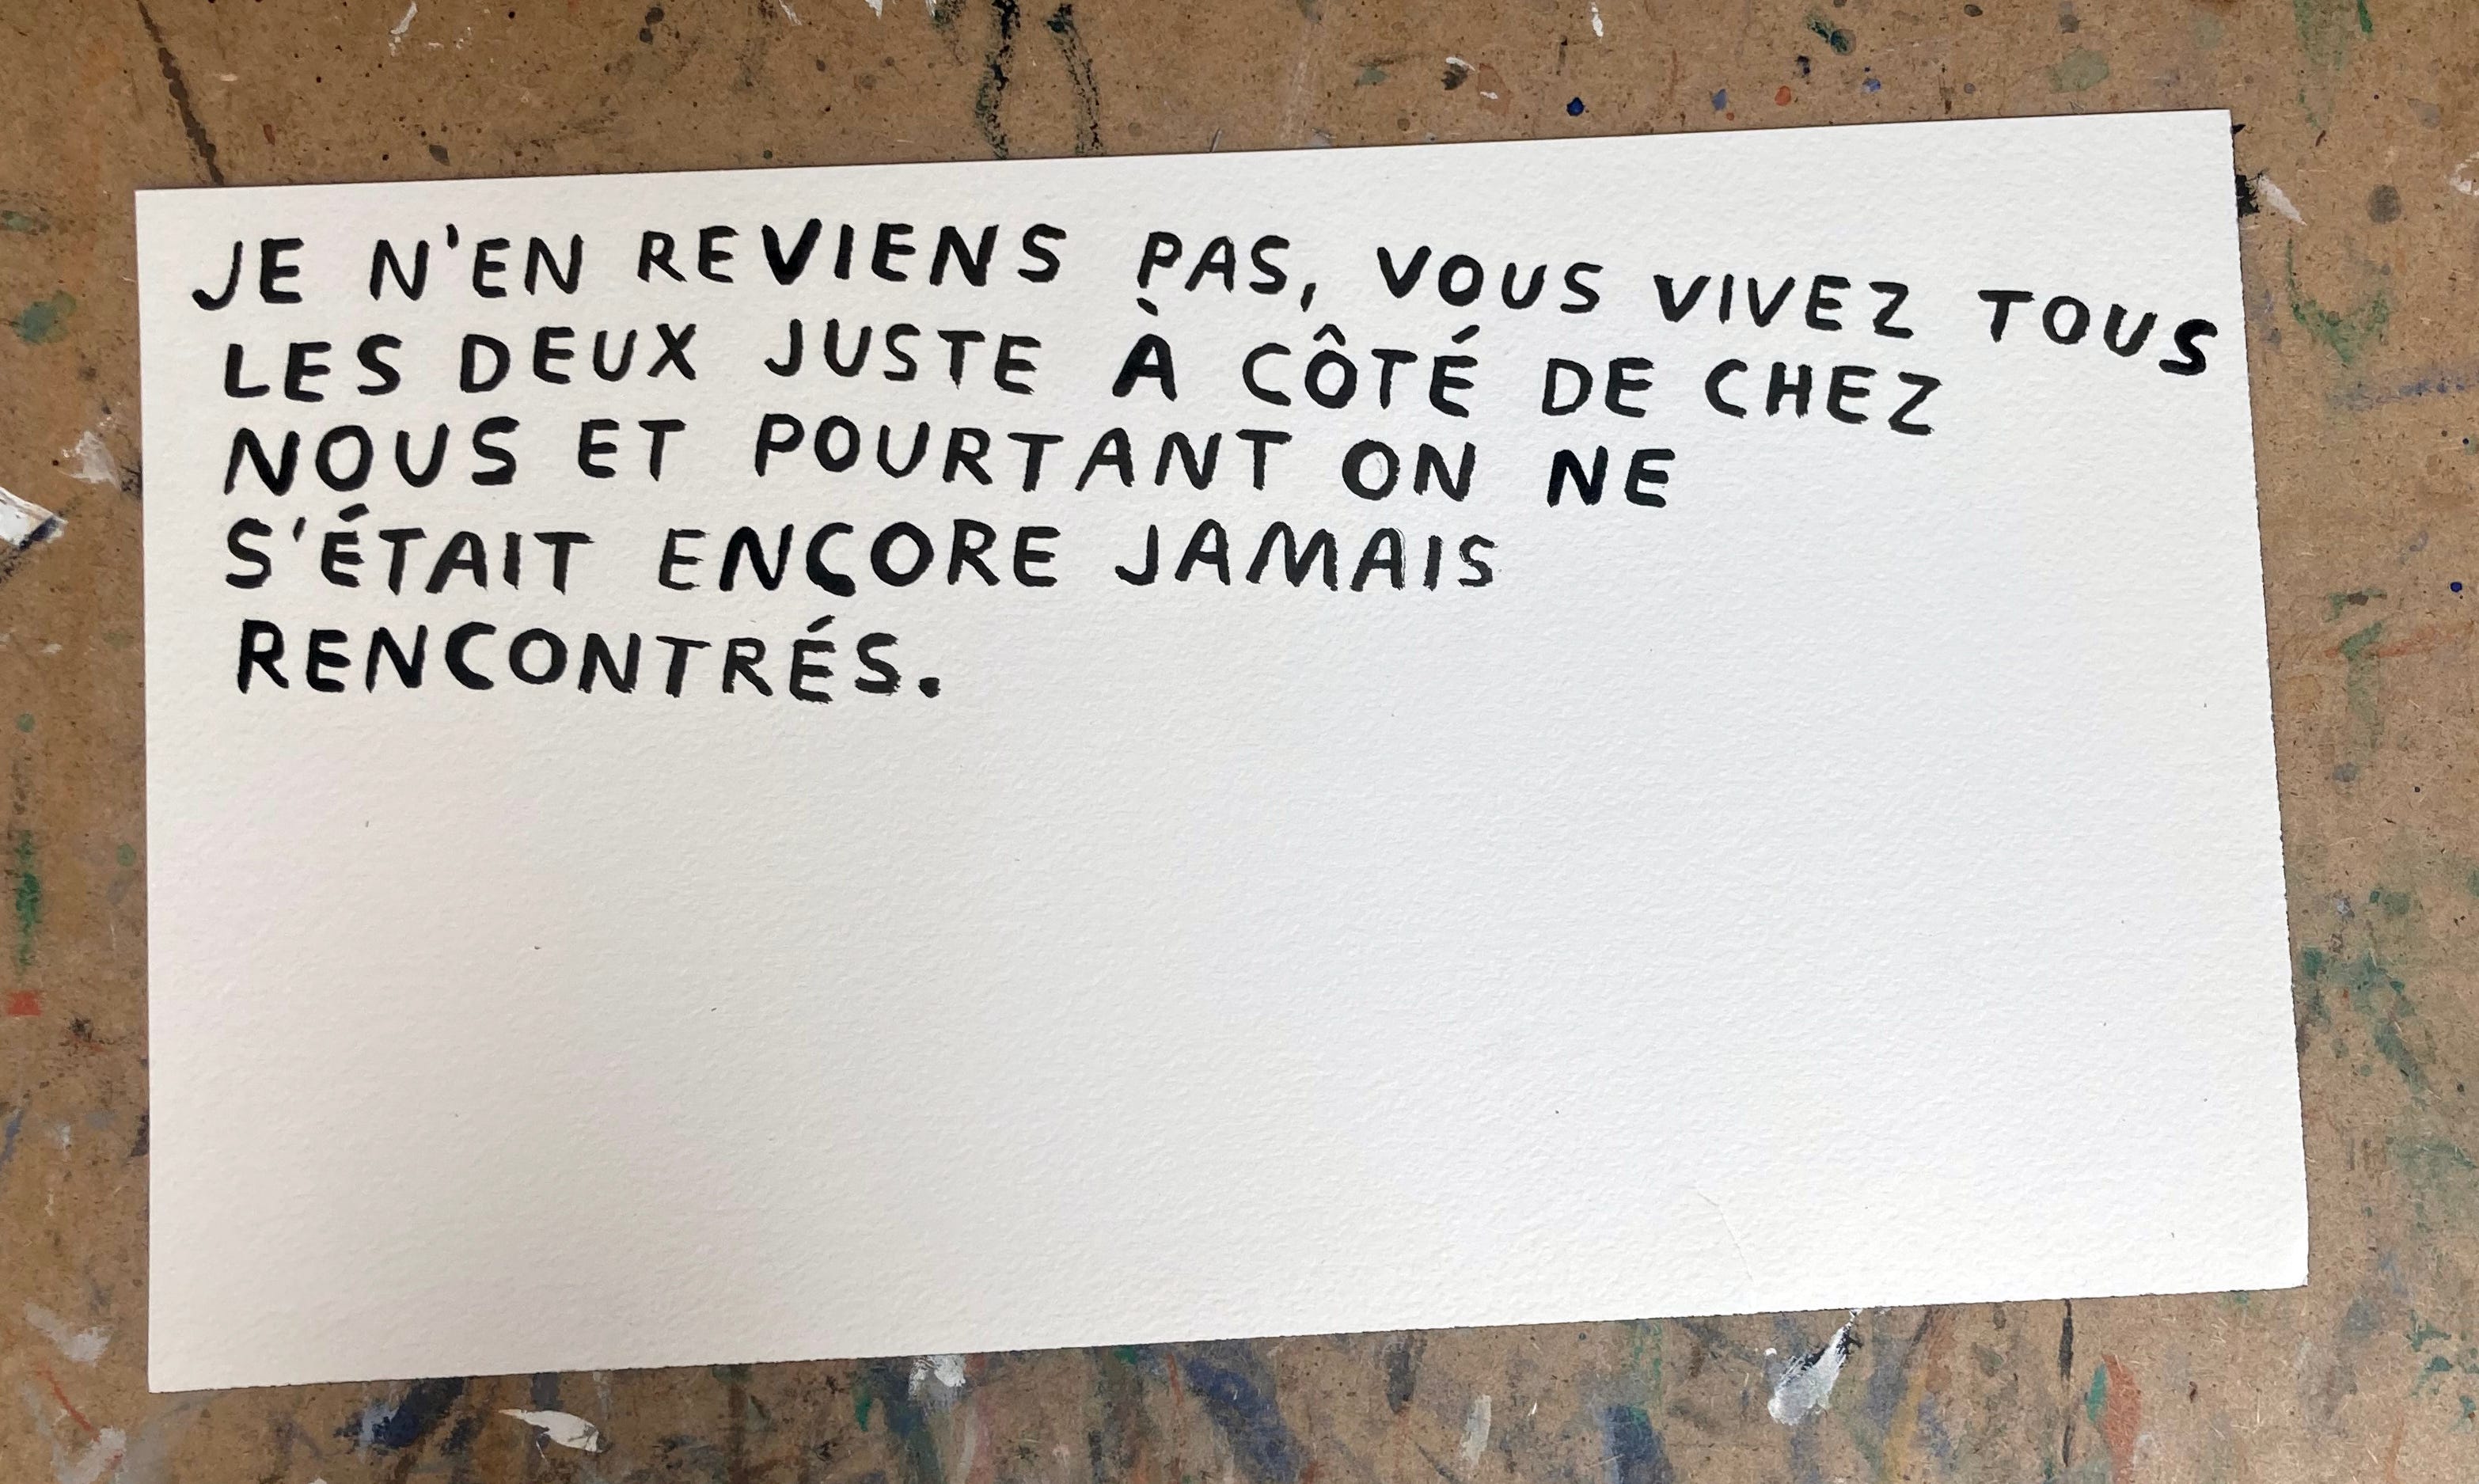 JE N'EN REVIENS PAS, VOUS VIVEZ TOUS
LES DEUX JUSTE À CÔTÉ DE CHEZ
NOUS ET POURTANT ON NE
S'ÉTAIT ENCORE JAMAIS
RENCONTRÉS.